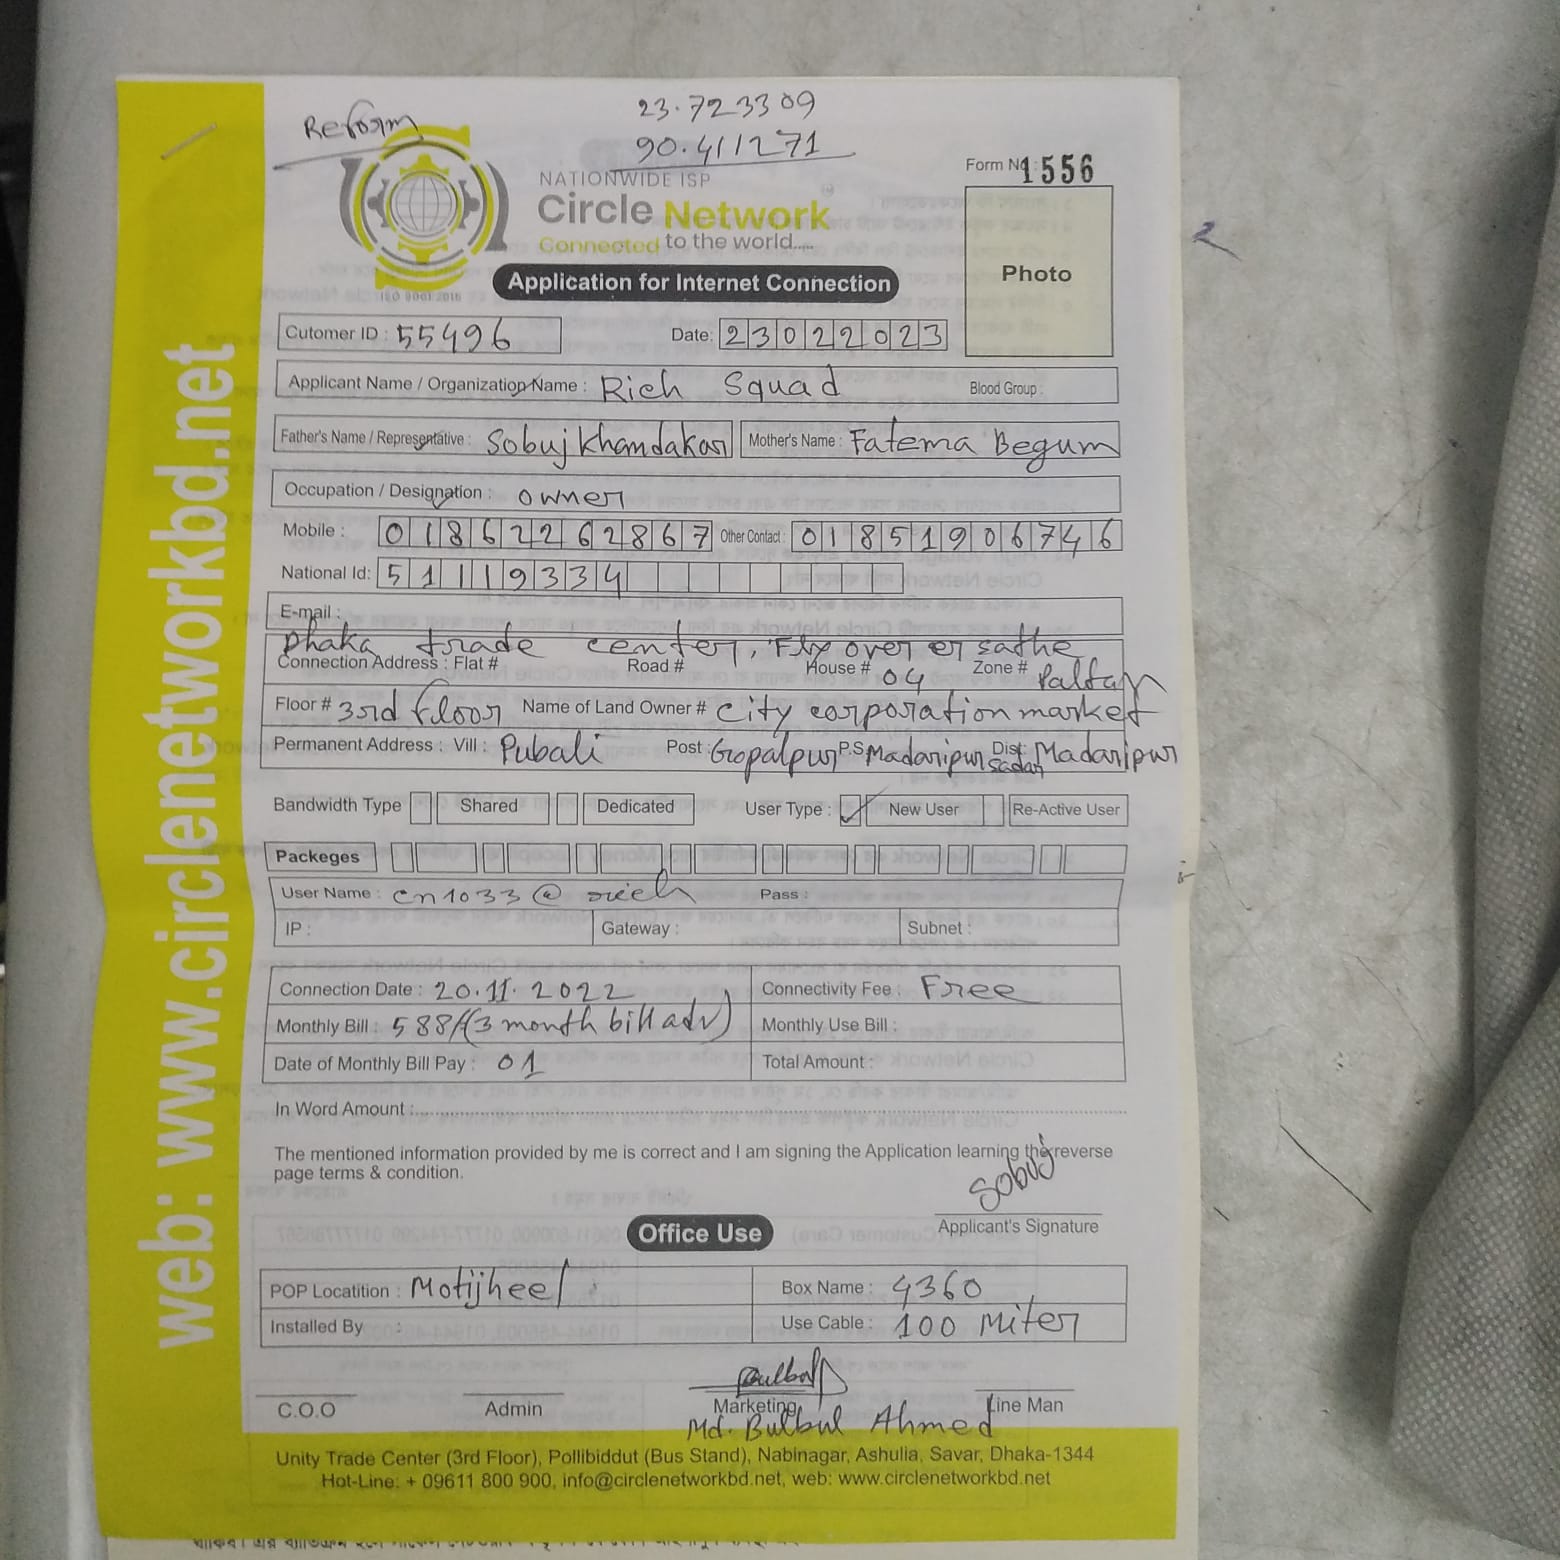 Reform
23.723309
90.411271
NATIONWIDE ISP
Circle Network
Connected to the world.....
ISO 9001:2015
Form No: 1556
Photo
Application for Internet Connection
Cutomer ID : 55496 Date: 23022023
Applicant Name / Organization Name : Rich Squad Blood Group :
Father's Name / Representative : Sobuj Khandakar Mother's Name : Fatema Begum
Occupation / Designation : owner
Mobile : 01862262867 Other Contact : 01851906746
National Id: 511119334
E-mail :
Dhaka trade center, Fly over er sathe
Connection Address : Flat # Road # House # 04 Zone # Paltan
Floor # 3rd floor Name of Land Owner # city corporation market
Permanent Address : Vill : Pubali Post : Gopalpur P.S Madaripur Sadar Dist: Madaripur
Bandwidth Type Shared Dedicated User Type : ✓ New User Re-Active User
Packeges
User Name : cn1033@rich Pass :
IP : Gateway : Subnet :
Connection Date : 20.11.2022 Connectivity Fee : Free
Monthly Bill : 588/(3 month bill adv) Monthly Use Bill :
Date of Monthly Bill Pay : 01 Total Amount :
In Word Amount :
The mentioned information provided by me is correct and I am signing the Application learning the reverse
page terms & condition.
Sobuj
Applicant's Signature
Office Use
POP Locatition : Motijheel Box Name : 4360
Installed By : Use Cable : 100 Miter
Bulbul
C.O.O Admin Marketing Line Man
Md. Bulbul Ahmed
Unity Trade Center (3rd Floor), Pollibiddut (Bus Stand), Nabinagar, Ashulia, Savar, Dhaka-1344
Hot-Line: + 09611 800 900, info@circlenetworkbd.net, web: www.circlenetworkbd.net
web: www.circlenetworkbd.net